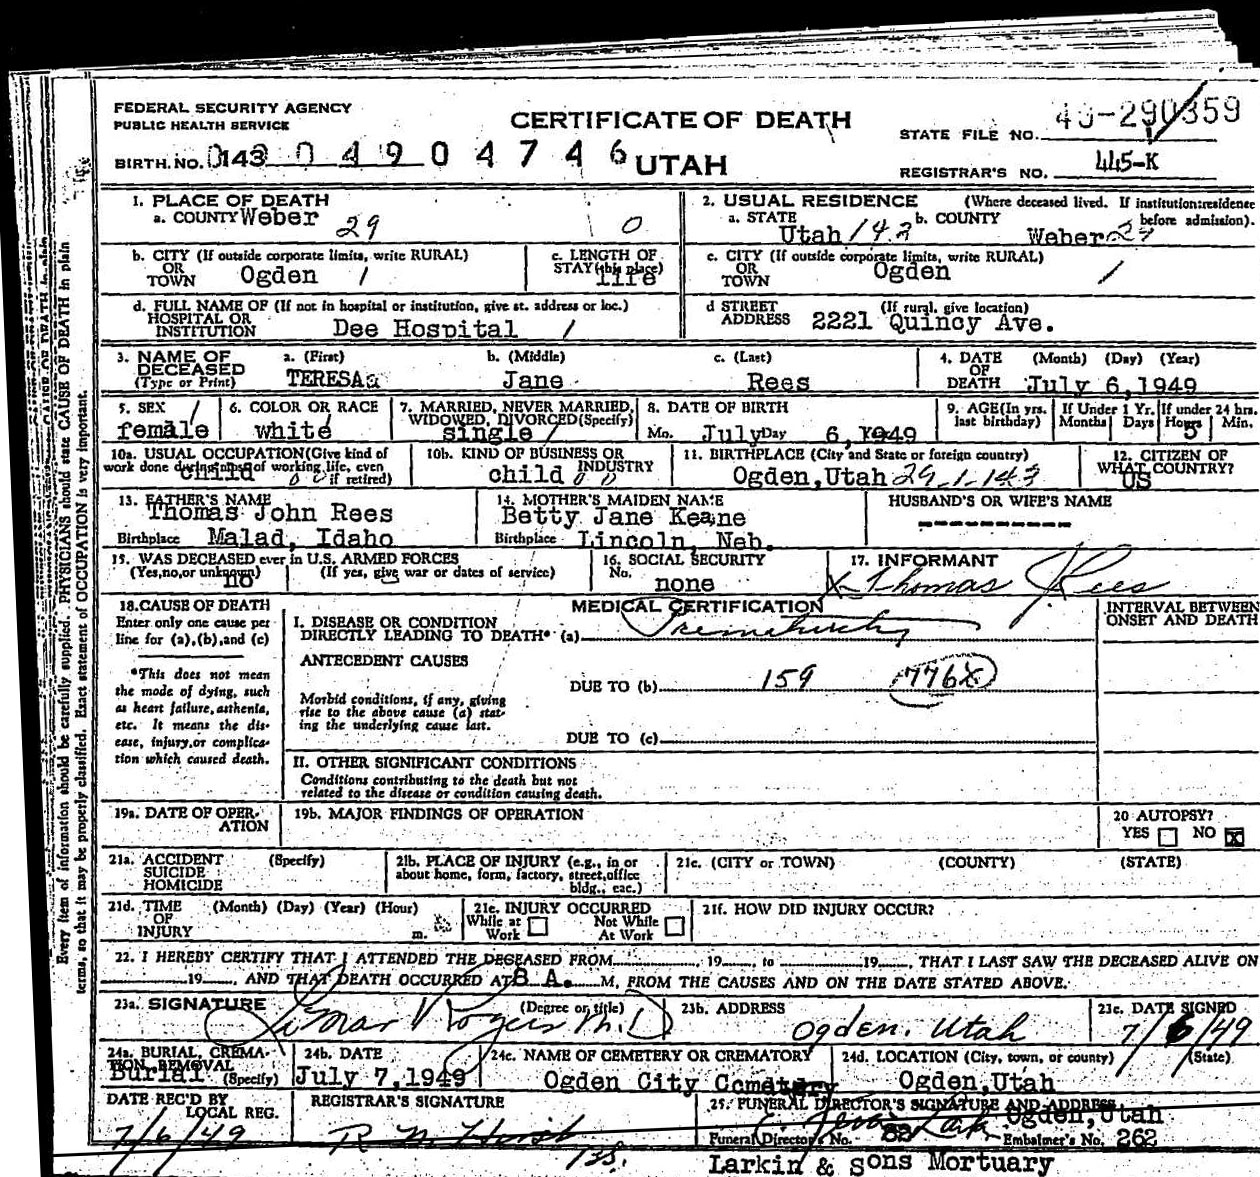 FEDERAL SECURITY AGENCY
PUBLIC HEALTH SERVICE
CERTIFICATE OF DEATH
UTAH
STATE FILE NO. 49-290359
BIRTH. NO. 143 04904746
REGISTRAR'S NO. 445-K
1. PLACE OF DEATH
a. COUNTY Weber 29 0
2. USUAL RESIDENCE (Where deceased lived. If institution: residence before admission).
a. STATE Utah 143 b. COUNTY Weber 29
b. CITY (If outside corporate limits, write RURAL)
OR
TOWN Ogden 1
c. LENGTH OF
STAY (this place) life
c. CITY (If outside corporate limits, write RURAL)
OR
TOWN Ogden 1
d. FULL NAME OF (If not in hospital or institution, give st. address or loc.)
HOSPITAL OR
INSTITUTION Dee Hospital 1
d STREET (If rural, give location)
ADDRESS 2221 Quincy Ave.
3. NAME OF DECEASED (Type or Print)
a. (First) b. (Middle) c. (Last)
TERESA Jane Rees
4. DATE OF DEATH (Month) (Day) (Year)
July 6,1949
5. SEX 1
female
6. COLOR OR RACE
white
7. MARRIED, NEVER MARRIED, WIDOWED, DIVORCED (Specify)
single 1
8. DATE OF BIRTH
Mo. July Day 6,1949
9. AGE (In yrs. last birthday)
If Under 1 Yr. Months Days
If under 24 hrs. Hours Min.
5
10a. USUAL OCCUPATION (Give kind of work done during most of working life, even if retired)
child 0 0
10b. KIND OF BUSINESS OR INDUSTRY
child 0 0
11. BIRTHPLACE (City and State or foreign country)
Ogden,Utah 29-1-143
12. CITIZEN OF WHAT COUNTRY?
US
13. FATHER'S NAME
Thomas John Rees
Birthplace Malad, Idaho
14. MOTHER'S MAIDEN NAME
Betty Jane Keane
Birthplace Lincoln, Neb.
HUSBAND'S OR WIFE'S NAME
-----------
15. WAS DECEASED ever in U.S. ARMED FORCES
(Yes,no,or unknown) (If yes, give war or dates of service)
no
16. SOCIAL SECURITY
No. none
17. INFORMANT
X Thomas J. Rees
18. CAUSE OF DEATH
Enter only one cause per
line for (a),(b),and (c)
*This does not mean
the mode of dying, such
as heart failure, asthenia,
etc. It means the dis-
ease, injury, or complica-
tion which caused death.
MEDICAL CERTIFICATION
I. DISEASE OR CONDITION
DIRECTLY LEADING TO DEATH* (a) Prematurity
ANTECEDENT CAUSES
DUE TO (b) 159 776X
Morbid conditions, if any, giving
rise to the above cause (a) stat-
ing the underlying cause last.
DUE TO (c)
II. OTHER SIGNIFICANT CONDITIONS
Conditions contributing to the death but not
related to the disease or condition causing death.
INTERVAL BETWEEN
ONSET AND DEATH
19a. DATE OF OPER-
ATION
19b. MAJOR FINDINGS OF OPERATION
20 AUTOPSY?
YES NO X
21a. ACCIDENT (Specify)
SUICIDE
HOMICIDE
21b. PLACE OF INJURY (e.g., in or
about home, form, factory, street, office
bldg., eac.)
21c. (CITY or TOWN) (COUNTY) (STATE)
21d. TIME (Month) (Day) (Year) (Hour)
OF
INJURY m.
21e. INJURY OCCURRED
While at Work Not While At Work
21f. HOW DID INJURY OCCUR?
22. I HEREBY CERTIFY THAT I ATTENDED THE DECEASED FROM 19 , to 19 , THAT I LAST SAW THE DECEASED ALIVE ON
19 , AND THAT DEATH OCCURRED AT 8 A. M, FROM THE CAUSES AND ON THE DATE STATED ABOVE.
23a. SIGNATURE (Degree or title)
Rogers M.D
23b. ADDRESS
Ogden, Utah
23c. DATE SIGNED
7/6/49
24a. BURIAL, CREMA-
TION, REMOVAL (Specify)
Burial
24b. DATE
July 7,1949
24c. NAME OF CEMETERY OR CREMATORY
Ogden City Cemetery
24d. LOCATION (City, town, or county) (State)
Ogden,Utah
DATE REC'D BY
LOCAL REG.
7/6/49
REGISTRAR'S SIGNATURE
25. FUNERAL DIRECTOR'S SIGNATURE AND ADDRESS
Ogden,Utah
Funeral Director's No. 82 Embalmer's No. 262
Larkin & Sons Mortuary
Every item of information should be carefully supplied. PHYSICIANS should state CAUSE OF DEATH in plain
terms, so that it may be properly classified. Exact statement of OCCUPATION is very important.